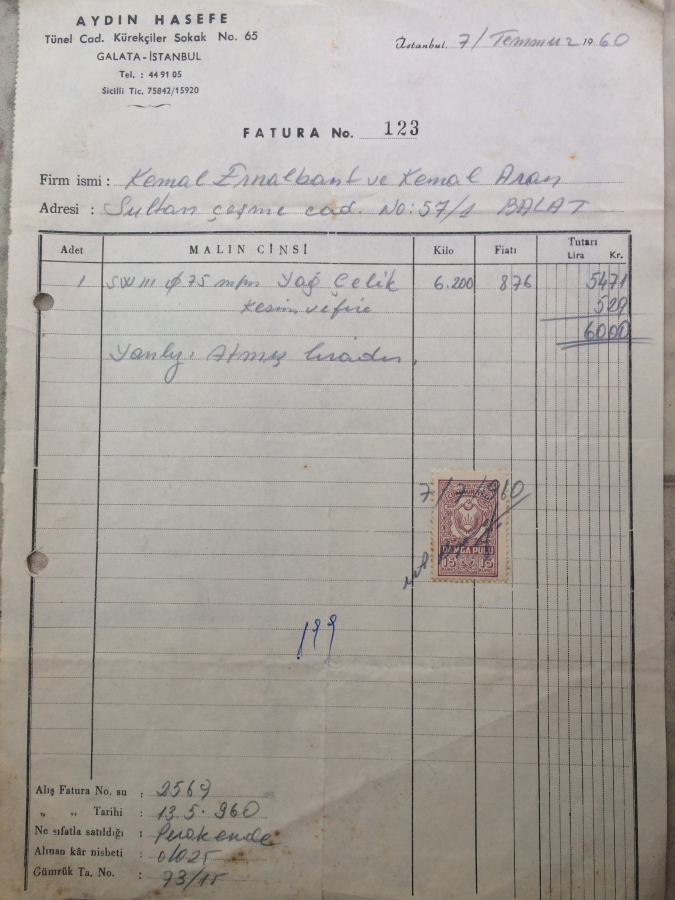 AYDIN HASEFE
Tünel Cad. Kürekçiler Sokak No. 65
GALATA-İSTANBUL
Tel. : 44 91 05
Sicilli Tic. 75842/15920
İstanbul, 7/Temmuz 1960
FATURA No. 123
Firm ismi : Kemal Ernalbant ve Kemal Aran
Adresi : Sultan çeşme cad. No: 57/1 BALAT
Adet MALIN CİNSİ Kilo Fiatı Tutarı
Lira Kr.
1 SW III φ 75 m/m Yağ Çelik 6.200 876 5471
Kesim ve fire 529
6000
Yanlız: Atmış liradır.
7/7/960
DAMGA PULU
15 15
199
Alış Fatura No. su : 2569
„ „ Tarihi : 13.5.960
Ne sıfatla satıldığı : Perakende
Alınan kâr nisbeti : 0/025
Gümrük Ta. No. : 73/15